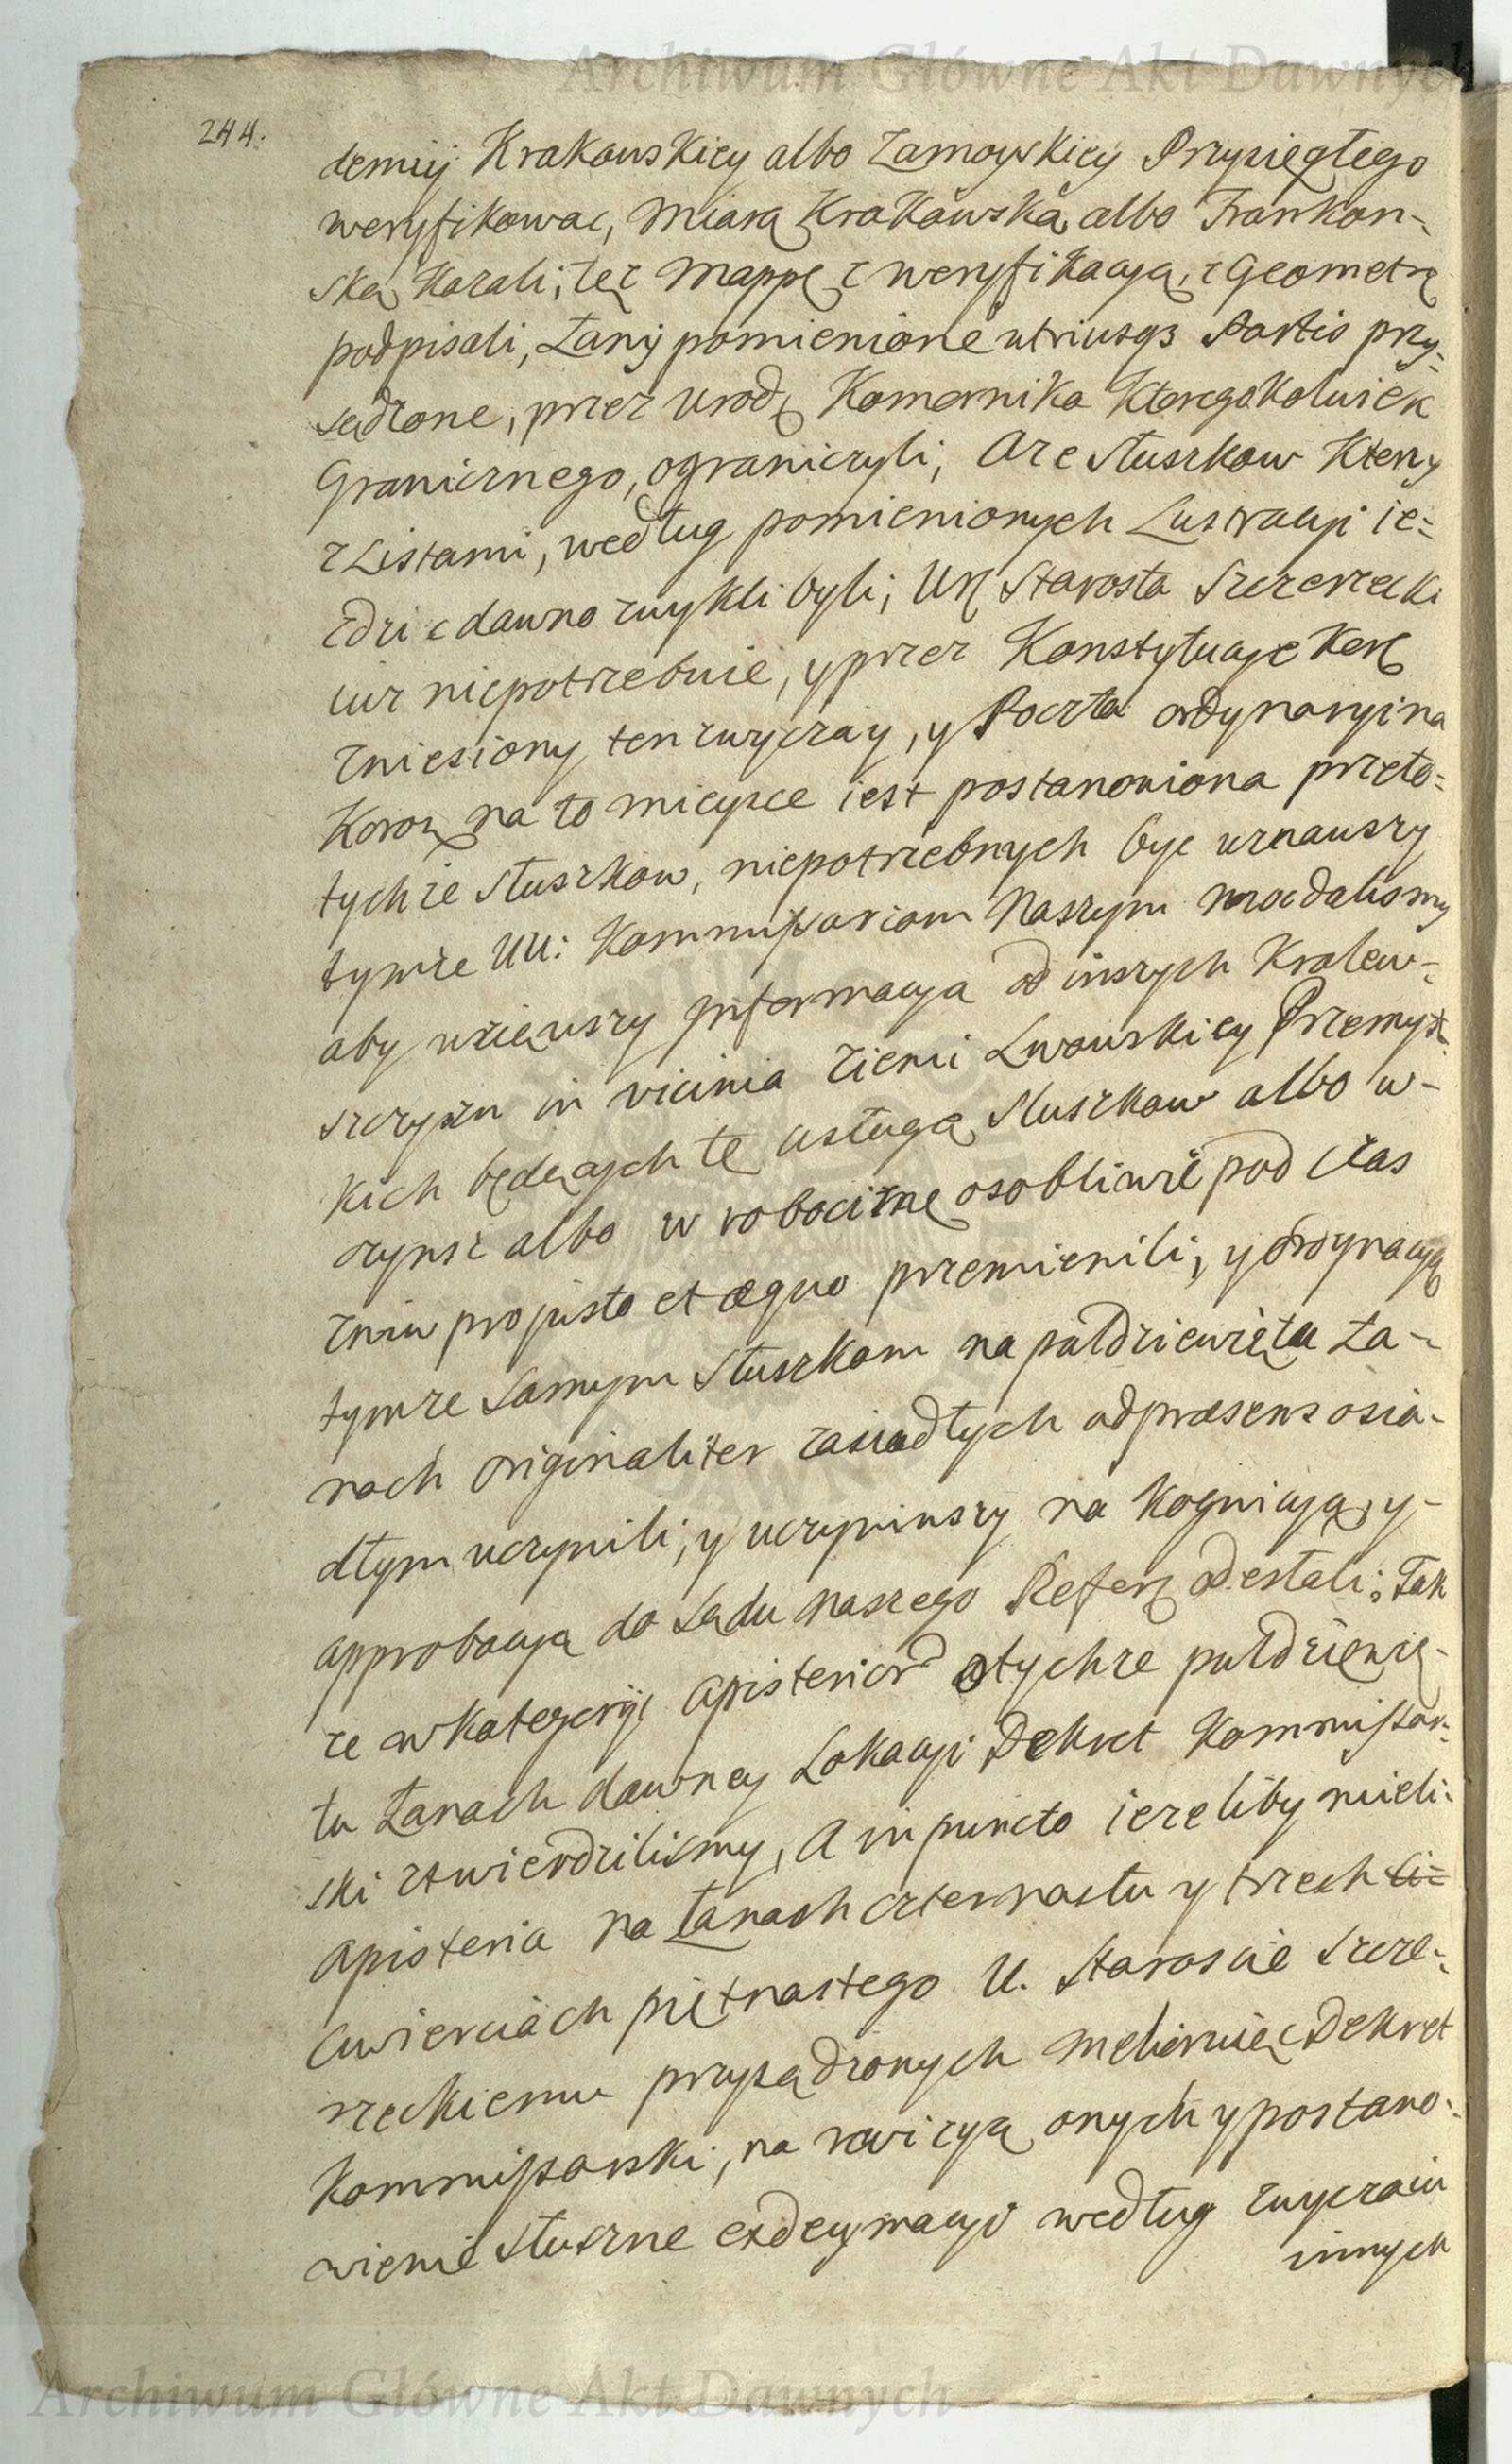 Archiwum Główne Akt Dawnych
244.
demij Krakowskiey albo Zamoyskiey Przysięgłego
weryfikowac, miarą Krakowską albo Frankon-
ską kazali; też mappę z weryfikacyą, z Geometrą
podpisali, Łany pomienione utriusq3 Partis przy-
sądzone, przez Urodz Komornika ktoregokolwiek
Granicznego, ograniczyli, Aże Służkow ktorzy
z Listami, według pomienionych Lustracyi ie-
zdzic dawno zwykli byli; Ur Starosta Szczerzecki
iuz niepotrzebnie, y przez Konstytucye Kor
zniesiony ten zwyczay, y Poczta ordynaryina
Koron na to mieysce iest postanowiona przeto-
tychże Służkow, niepotrzebnych byc uznawszy
tymże UU: Kommissarzom Naszym
aby wziąwszy Jnformacya od inszych Krolew-
szczyzn in vicinia Ziemi Lwowskiey Przemys-
kich będących tę usługę Służkow albo w-
czynsz albo w robociznę osobliwie pod czas
żniw pro justo et aequo przemienili, y ordynacyą
tymże samym Służkom na pułdziewięta Ła-
nach originaliter zasiadłych ad praesens osia-
dłym uczynili; y uczyniwszy na kognicyą, y-
approbacyą do Sądu naszego Refer odesłali; Tak
ze w kategoryi, apisterior o tychże pułdziewię-
tu Łanach dawney Lokacyi Dekret Kommissar-
ski ztwierdzilismy, A in puncto iezeliby mieli-
apisteria na Łanach czternastu y trzech ći-
cwierciach piętnastego U. Staroscie Szcze-
rzeckiemu przysądzonych meliorując Dekret
Kommissarski, na rewizyą onych y postano-
wienie słuszne exdecymacyi według zwyczaiu
innych
Archiwum Główne Akt Dawnych